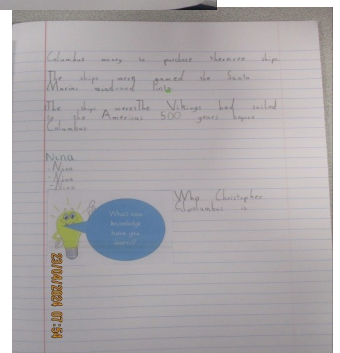 Columbus money to purchase there ships
The ships were named the Santa
Maria and
The ships The Vikings had sailed
to the Americas 500 years before
Columbus
Nina
Nina
Nina
Nina
What new
knowledge
have you
learnt?
Who Christopher
Columbus is
23/04/2024 07:54